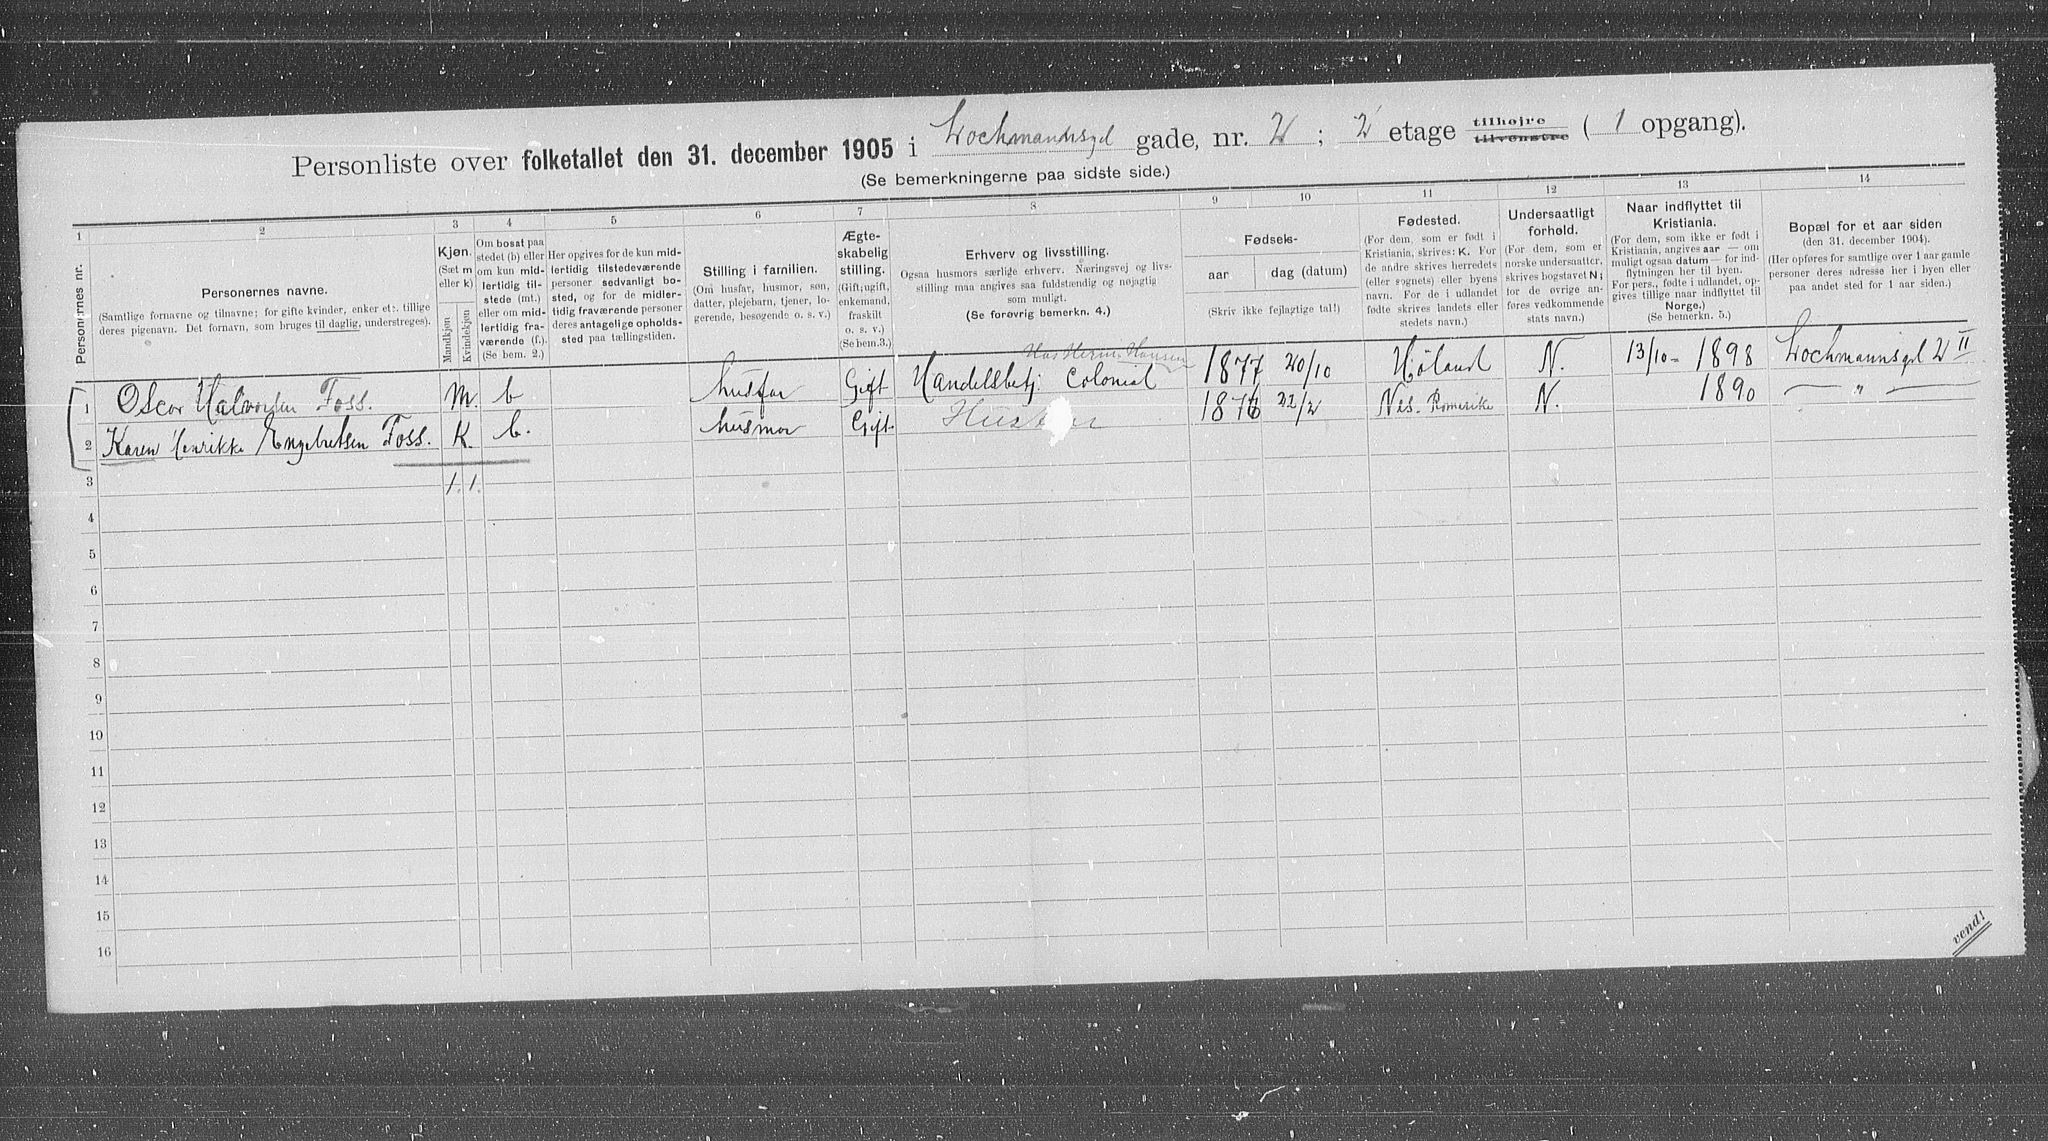 Personliste over folketallet den 31. december 1905 i Lochmandsgd gade, nr. 2 ; 2 etage tilhøjre tilvenstre ( 1 opgang).
(Se bemerkningerne paa sidste side.)
1 2 3 4 5 6 7 8 9 10 11 12 13 14
Personernes nr.
Personernes navne.
(Samtlige fornavne og tilnavne; for gifte kvinder, enker etc. tillige
deres pigenavn. Det fornavn, som bruges til daglig, understreges).
Kjøn.
(Sæt m
eller k)
Mandkjøn
Kvindekjøn
Om bosat paa
stedet (b) eller
om kun mid-
lertidig til-
stede (mt.)
eller om mid-
lertidig fra-
værende (f.).
(Se bem. 2.)
Her opgives for de kun mid-
lertidig tilstedeværende
personer sedvanligt bo-
sted, og for de midler-
tidig fraværende personer
deres antagelige opholds-
sted paa tællingstiden.
Stilling i familien.
(Om husfar, husmor, søn,
datter, plejebarn, tjener, lo-
gerende, besøgende o. s. v.)
Ægte-
skabelig
stilling.
(Gift; ugift,
enkemand,
fraskilt
o. s. v.)
(Se bem. 3.)
Erhverv og livsstilling.
Ogsaa husmors særlige erhverv. Næringsvej og livs-
stilling maa angives saa fuldstændig og nøjagtig
som muligt.
(Se forøvrig bemerkn. 4.)
Fødsels-
aar dag (datum)
(Skriv ikke fejlagtige tal!)
Fødested.
(For dem, som er født i
Kristiania, skrives: K. For
de andre skrives herredets
(eller sognets) eller byens
navn. For de i udlandet
fødte skrives landets eller
stedets navn.)
Undersaatligt
forhold.
(For dem, som er
norske undersaatter,
skrives bogstavet N;
for de øvrige an-
føres vedkommende
stats navn.)
Naar indflyttet til
Kristiania.
(For dem, som ikke er født i
Kristiania, angives aar — om
muligt ogsaa datum — for ind-
flytningen her til byen.
For pers., fødte i udlandet, op-
gives tillige naar indflyttet til
Norge.)
(Se bemerkn. 5.)
Bopæl for et aar siden
(den 31. december 1904).
(Her opføres for samtlige over 1 aar gamle
personer deres adresse her i byen eller
paa andet sted for 1 aar siden.)
Hos Herm. Hansen
1 Oscar Halvorsen Foss. M. b husfar Gift Handelsbetj. Colonial 1877 20/10 Høland N. 13/10 - 1898 Lochmannsgd 2 II
2 Karen Henrikke Engebretsen Foss. K. b. husmor Gift 1876 22/2 Nes. Romerike N. 1890 — " —
3 1. 1.
4
5
6
7
8
9
10
11
12
13
14
15
16
vend!